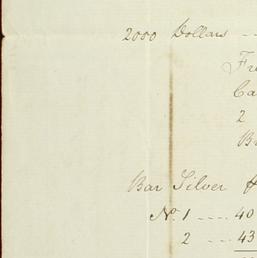 2000 Dollars --
Fr
Ca
2
B
Bar Silver &
No. 1 ---- 40
2 --- 43